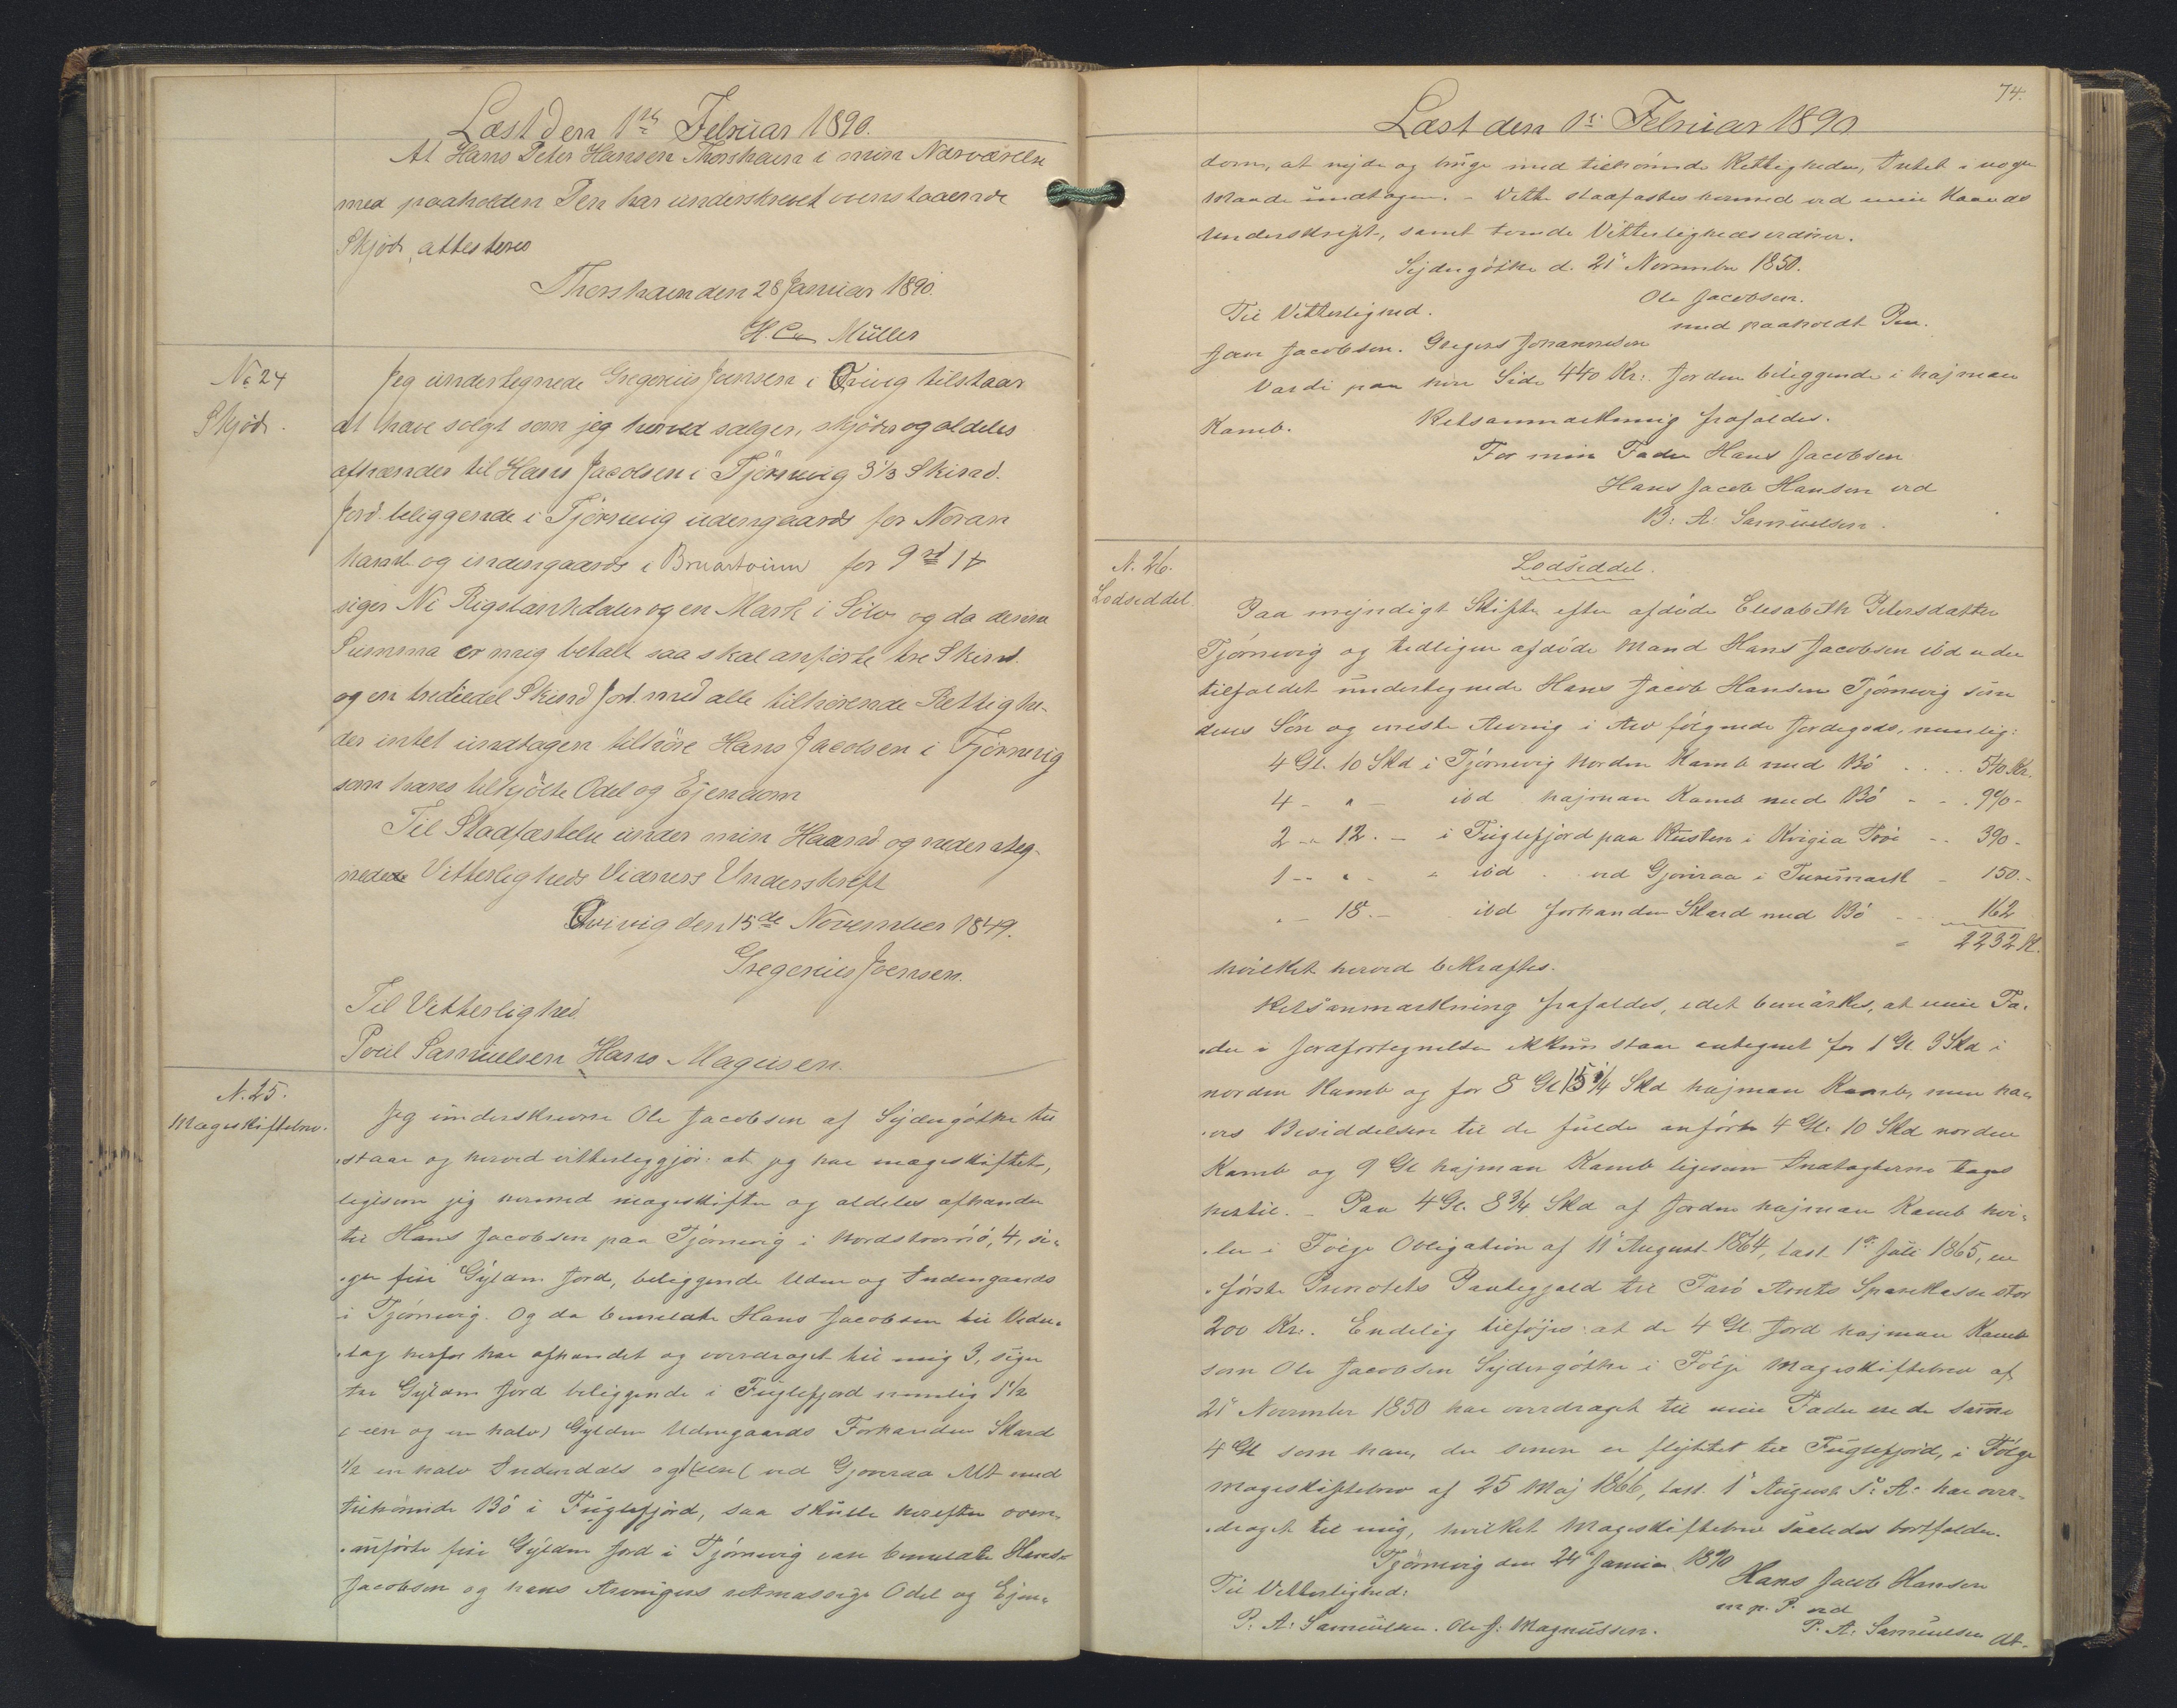 Læst den 1ste Februar 1890.
At Hans Peter Hansen Thorshavn i min Nærværelse
med paaholden Pen har underskrevet ovenstaaende
Skjøde, attesteres
Thorshavn den 28 Januar 1890.
H. C. Müller
No 24
Skjøde.
Jeg undertegnede Gregorius Joensen i Qvivig tilstaar
at have solgt som jeg herved sælger, skjøder og aldeles
afhænder til Hans Jacobsen i Tjørnevig 3 1/3 Skind.
Jord beliggende i Tjørnevig udengaards for Noran
kamb og indengaards i Bruartoinn for 9 rd 1 #
siger Ni Rigsbankdaler og en Mark i Sølv og da denne
Summa er mig betalt saa skal anførte tre Skind.
og en trediedel Skind Jord med alle tilhørende Rettighe-
der intet undtagen tilhøre Hans Jacobsen i Tjørnevig
som hans tilkjøbte Odel og Ejendom
Til Stadfæstelse under min Haand og nedenteg-
nede Vitterligheds Vidners Underskrift
Qvivig den 15de November 1849.
Gregorius Joensen.
Til Vitterlighed
Poul Samuelsen Hans Magnsen.
N. 25.
Mageskiftebrev.
Jeg underskrevne Ole Jacobsen af Sydrugøthe til
staar og herved vitterliggjør: at jeg har mageskiftet,
ligesom jeg hermed mageskifter og aldeles afhænder
til Hans Jacobsen paa Tjørnevig i Nordstrømø, 4, si-
ger fire Gylden Jord, beliggende Uden og Indengaards
i Tjørnevig. Og da bemeldte Hans Jacobsen til Veder-
lag herfor har afhændet og overdraget til mig 3, siger
tre Gylden Jord beliggende i Fuglefjord nemlig 1 1/2
(een og en halv) Gylden Udengaards Forhanden Skard
1/2 en halv Inderdals og 1 (een) ved Gjovraa Alt med
tilhørende Bø i Fuglefjord, saa skulle herefter oven-
anførte fire Gylden Jord i Tjørnevig være bemeldte Hans
Jacobsen og hans Arvingers retmæssige Odel og Ejen-
74.
Læst den 1ste Februar 1890
dom, at nyde og bruge med tilhørende Rettigheder, Intet i nogen
Maade undtagen. - Dette stadfæstes hermed ved min Haands
Underskrift, samt tvende Vitterlighedsvidner.
Sydrugøthe d. 21 November 1850.
Ole Jacobsen.
med paaholdt Pen.
Til Vitterlighed.
Joen Jacobsen. Gregers Johannesen
Værdi paa hver Side 440 Kr. Jorden beliggende i hajman
Kamb. Retsanmærkning frafaldes.
For min Fader Hans Jacobsen
Hans Jacob Hansen ved
P. A. Samuelsen.
N. 26.
Lodseddel.
Lodseddel.
Paa myndigt Skifte efter afdøde Elisabeth Petersdatter
Tjørnevig og tidligere afdøde Mand Hans Jacobsen ibd er der
tilfaldet undertegnede Hans Jacob Hansen Tjørnevig som
deres Søn og eneste Arving i Arv følgende Jordegods, nemlig:
4 Gl. 10 Skd i Tjørnevig norden Kamb med Bø .... 540 Kr.
4 - " - ibd hajman Kamb med Bø - - . 990 -
2 - " 12. - i Fuglefjord paa Kusten i Kvigia Trøi - - 390 -
1 - - " - " ibd . ved Gjovraa i Turumark - 150. -
" - 18. - ibd forhanden Skard med Bø - 162
- 2232 K.
hvilket herved bekræftes.
Retsanmærkning frafaldes, idet bemærkes, at min Fa-
der i Jordfortegnelsen ikkun staar antegnet for 1 Gl 3 Skd i
norden Kamb og for 8 Gl 15 1/4 Skd hajman Kamb, men ha-
ns Besiddelser til de fulde anførte 4 Gl. 10 Skd norden
Kamb og 9 Gl hajman Kamb ligesom Indtægterne tages
hertil. - Paa 4 Gl. 8 3/4 Skd af Jorden hajman Kamb hvi-
ler i Følge Obligation af 11 August 1864, læst 1ste Juli 1865, en
første Prioritets Pantegjæld til Færø Amts Sparekasse stor
200 Kr. Endelig tilføjes: at de 4 Gl. Jord hajman Kamb
som Ole Jacobsen Sydrugøthe i Følge Mageskiftebrev af
21 November 1850 har overdraget til min Fader ere de samme
4 Gl som han, der senere er flyttet til Fuglefjord, i Følge
Mageskiftebrev af 25 Maj 1866, læst 1 August s. A. har over-
draget til mig, hvilket Mageskiftebrev saaledes bortfalder.
Tjørnevig den 24 Januar 1890
Hans Jacob Hansen
m. p. P. ved
P. A. Samuelsen
Til Vitterlighed:
P. A. Samuelsen. Ole J. Magnussen.
At.